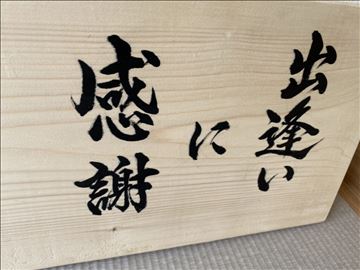 出逢い
に
感謝